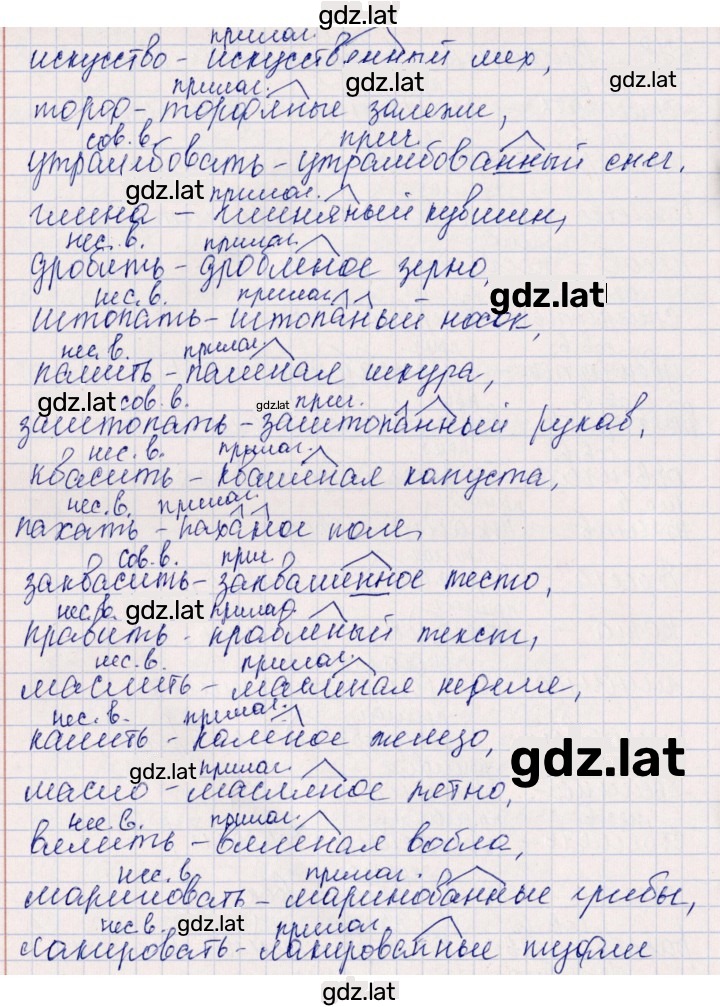 gdz.lat
прилаг.
искусство - искусственный мех,
прилаг. gdz.lat gdz.lat
торф - торфяные залежи,
сов. в. прич.
утрамбовать - утрамбованный снег.
gdz.lat прилаг.
глина - глиняный кувшин,
нес. в. прилаг.
дробить - дробленое зерно,
нес. в. прилаг. gdz.lat
штопать - штопаный носок,
нес. в. прилаг.
палить - паленая шкура,
gdz.lat сов. в. gdz.lat прич.
заштопать - заштопанный рукав,
нес. в. прилаг.
квасить - квашеная капуста,
нес. в. прилаг.
пахать - паханое поле,
сов. в. прич.
заквасить - заквашенное тесто,
нес. в. gdz.lat прилаг
править - правленый текст,
нес. в. прилаг.
маслить - масленая неделя,
нес. в. прилаг.
калить - каленое железо,
gdz.lat прилаг. gdz.lat
масло - масляное пятно,
нес. в. прилаг.
вялить - вяленая вобла,
нес. в. прилаг.
мариновать - маринованные грибы,
нес. в. gdz.lat прилаг.
лакировать - лакированные туфли
gdz.lat